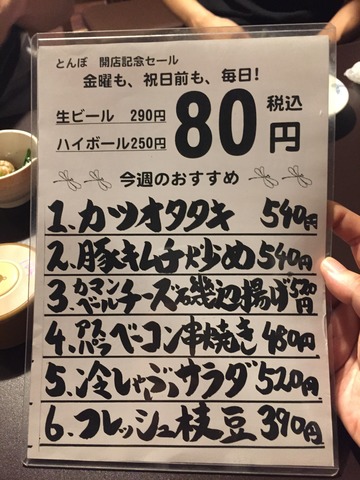 とんぼ 開店記念セール
金曜も、祝日前も、毎日!
生ビール 290円
ハイボール250円
80円
税込
今週のおすすめ
1. カツオタタキ 540円
2. 豚キムチ炒め 540円
3. カマンベールチーズ磯辺揚げ 520円
4. アスパラベーコン串焼き 480円
5. 冷しゃぶサラダ 520円
6. フレッシュ枝豆 390円